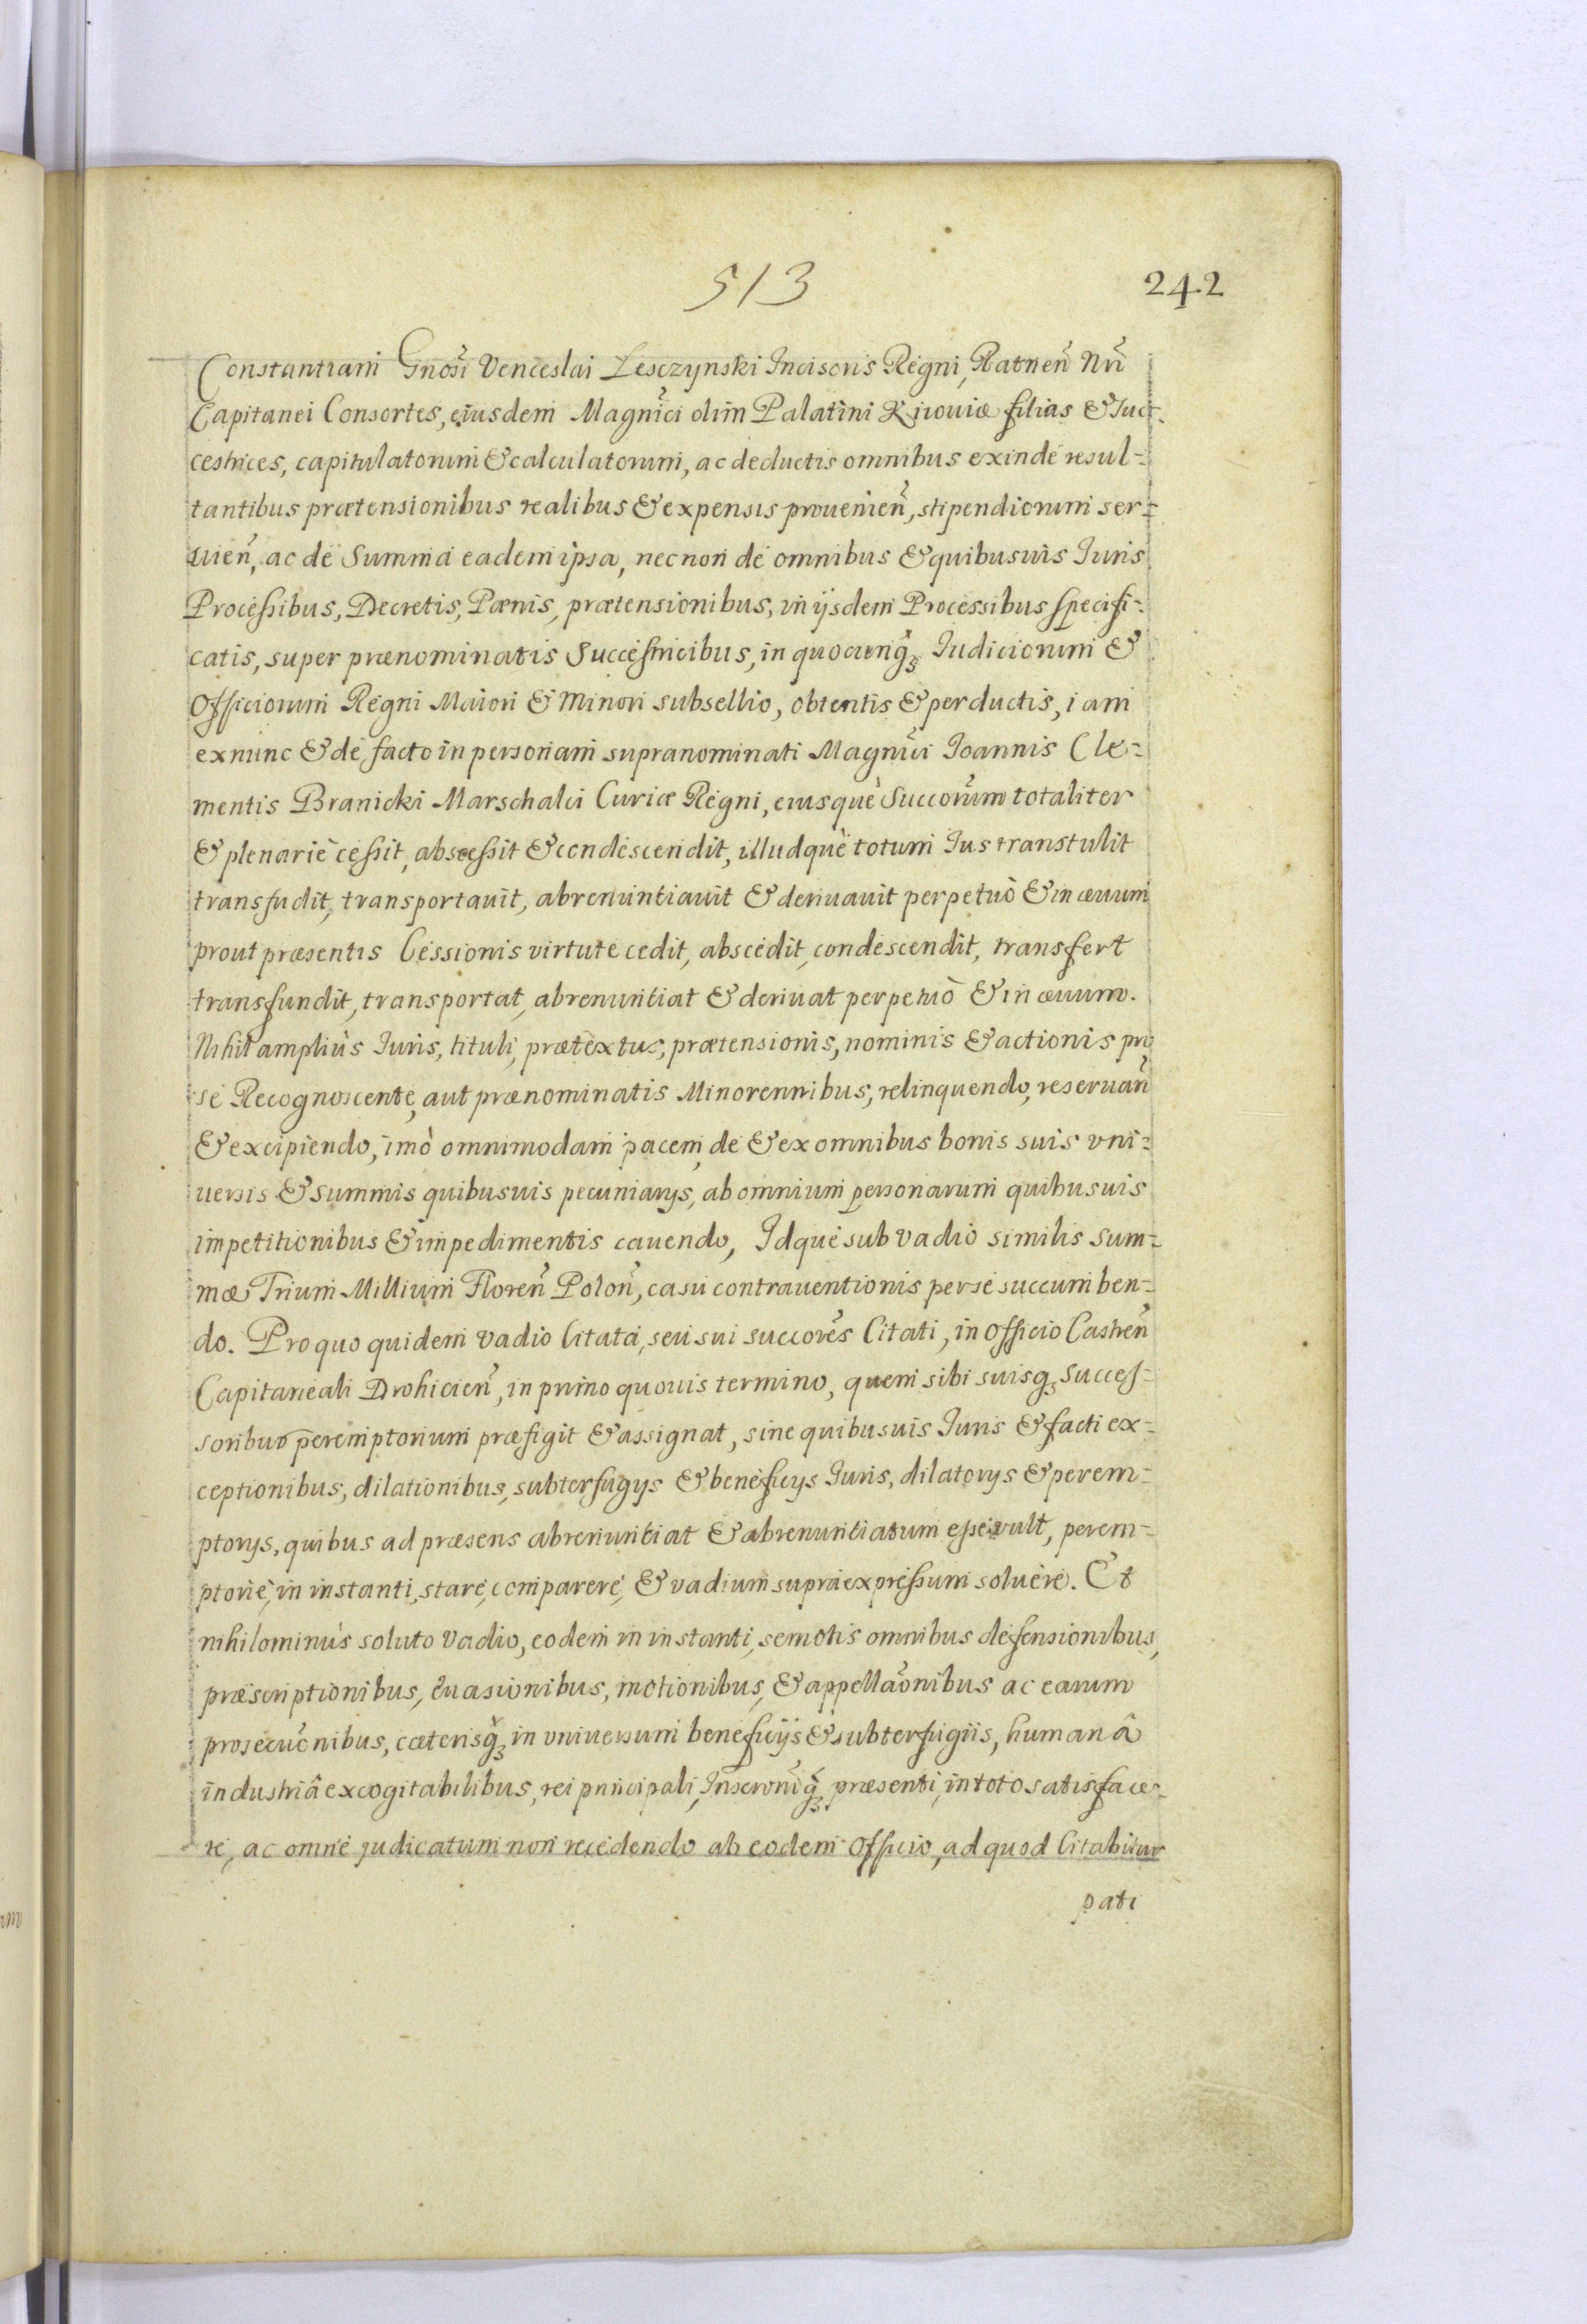 513
242
Constantiam Gnosi Venceslai Lesczynski Incisoris Regni, Ratnen Nri
Capitanei Consortes, eiusdem Magnici olim Palatini Kijouiæ filias & Suc-
cestrices, capitulatorum & calculatorum, ac deductis omnibus exinde resul-
tantibus prætensionibus realibus & expensis prouenien, stipendiorum ser-
uien, ac de Summa eadem ipsa, necnon de omnibus & quibusuis Iuris
Processibus, Decretis, Pænis, prætensionibus, in ijsdem Processibus specifi-
catis, super prænominatis Successricibus, in quocunq; Iudiciorum &
Officiorum Regni Maiori & Minori subsellio, obtentis & perductis, iam
exnunc & de facto in personam supranominati Magnici Joannis Cle-
mentis Branicki Marschalci Curiæ Regni, eiusque Succorum totaliter
& plenarie cessit, abscessit & condescendit, illudque totum Ius transtulit
transfudit, transportauit, abrenuntiauit & deriuauit perpetuo & in æuum
prout præsentis Cessionis virtute cedit, abscedit, condescendit, transfert
transfundit, transportat, abrenuntiat & deriuat perpetuo & in æuum.
Nihil amplius Iuris, tituli, prætextus, prætensionis, nominis & actionis pro
se Recognoscente, aut prænominatis Minorennibus, relinquendo, reseruan
& excipiendo, imò omnimodam pacem, de & ex omnibus bonis suis vni-
uersis & summis quibusuis pecuniarys, ab omnium personarum quibusuis
impetitionibus & impedimentis cauendo, Idque sub vadio similis sum-
mæ Trium Millium Floren Polon, casu contrauentionis per se succumben-
do. Pro quo quidem vadio Citata, seu sui succores Citati, in Officio Castren
Capitaneali Drohicien, in primo quouis termino, quem sibi suisq; succes-
soribus peremptorium præfigit & assignat, sine quibusuis Iuris & facti ex-
ceptionibus, dilationibus, subterfugys & beneficys Iuris, dilatorys & perem-
ptorys, quibus ad præsens abrenuntiat & abrenuntiatum esse vult, perem-
ptorie, in instanti, stare, comparere, & vadium supraexpressum soluere. Et
nihilominus soluto vadio, eodem in instanti, semotis omnibus defensionibus,
præscriptionibus, euasionibus, motionibus, & appellaonibus ac earum
prosecuonibus, cæterisq; in vniuersum beneficijs & subterfugiis, humanâ
industriâ excogitabilibus, rei principali, Inscroniq; præsenti, in toto satisface-
re, ac omne judicatum non recedendo ab eodem Officio, ad quod Citabitur
pati